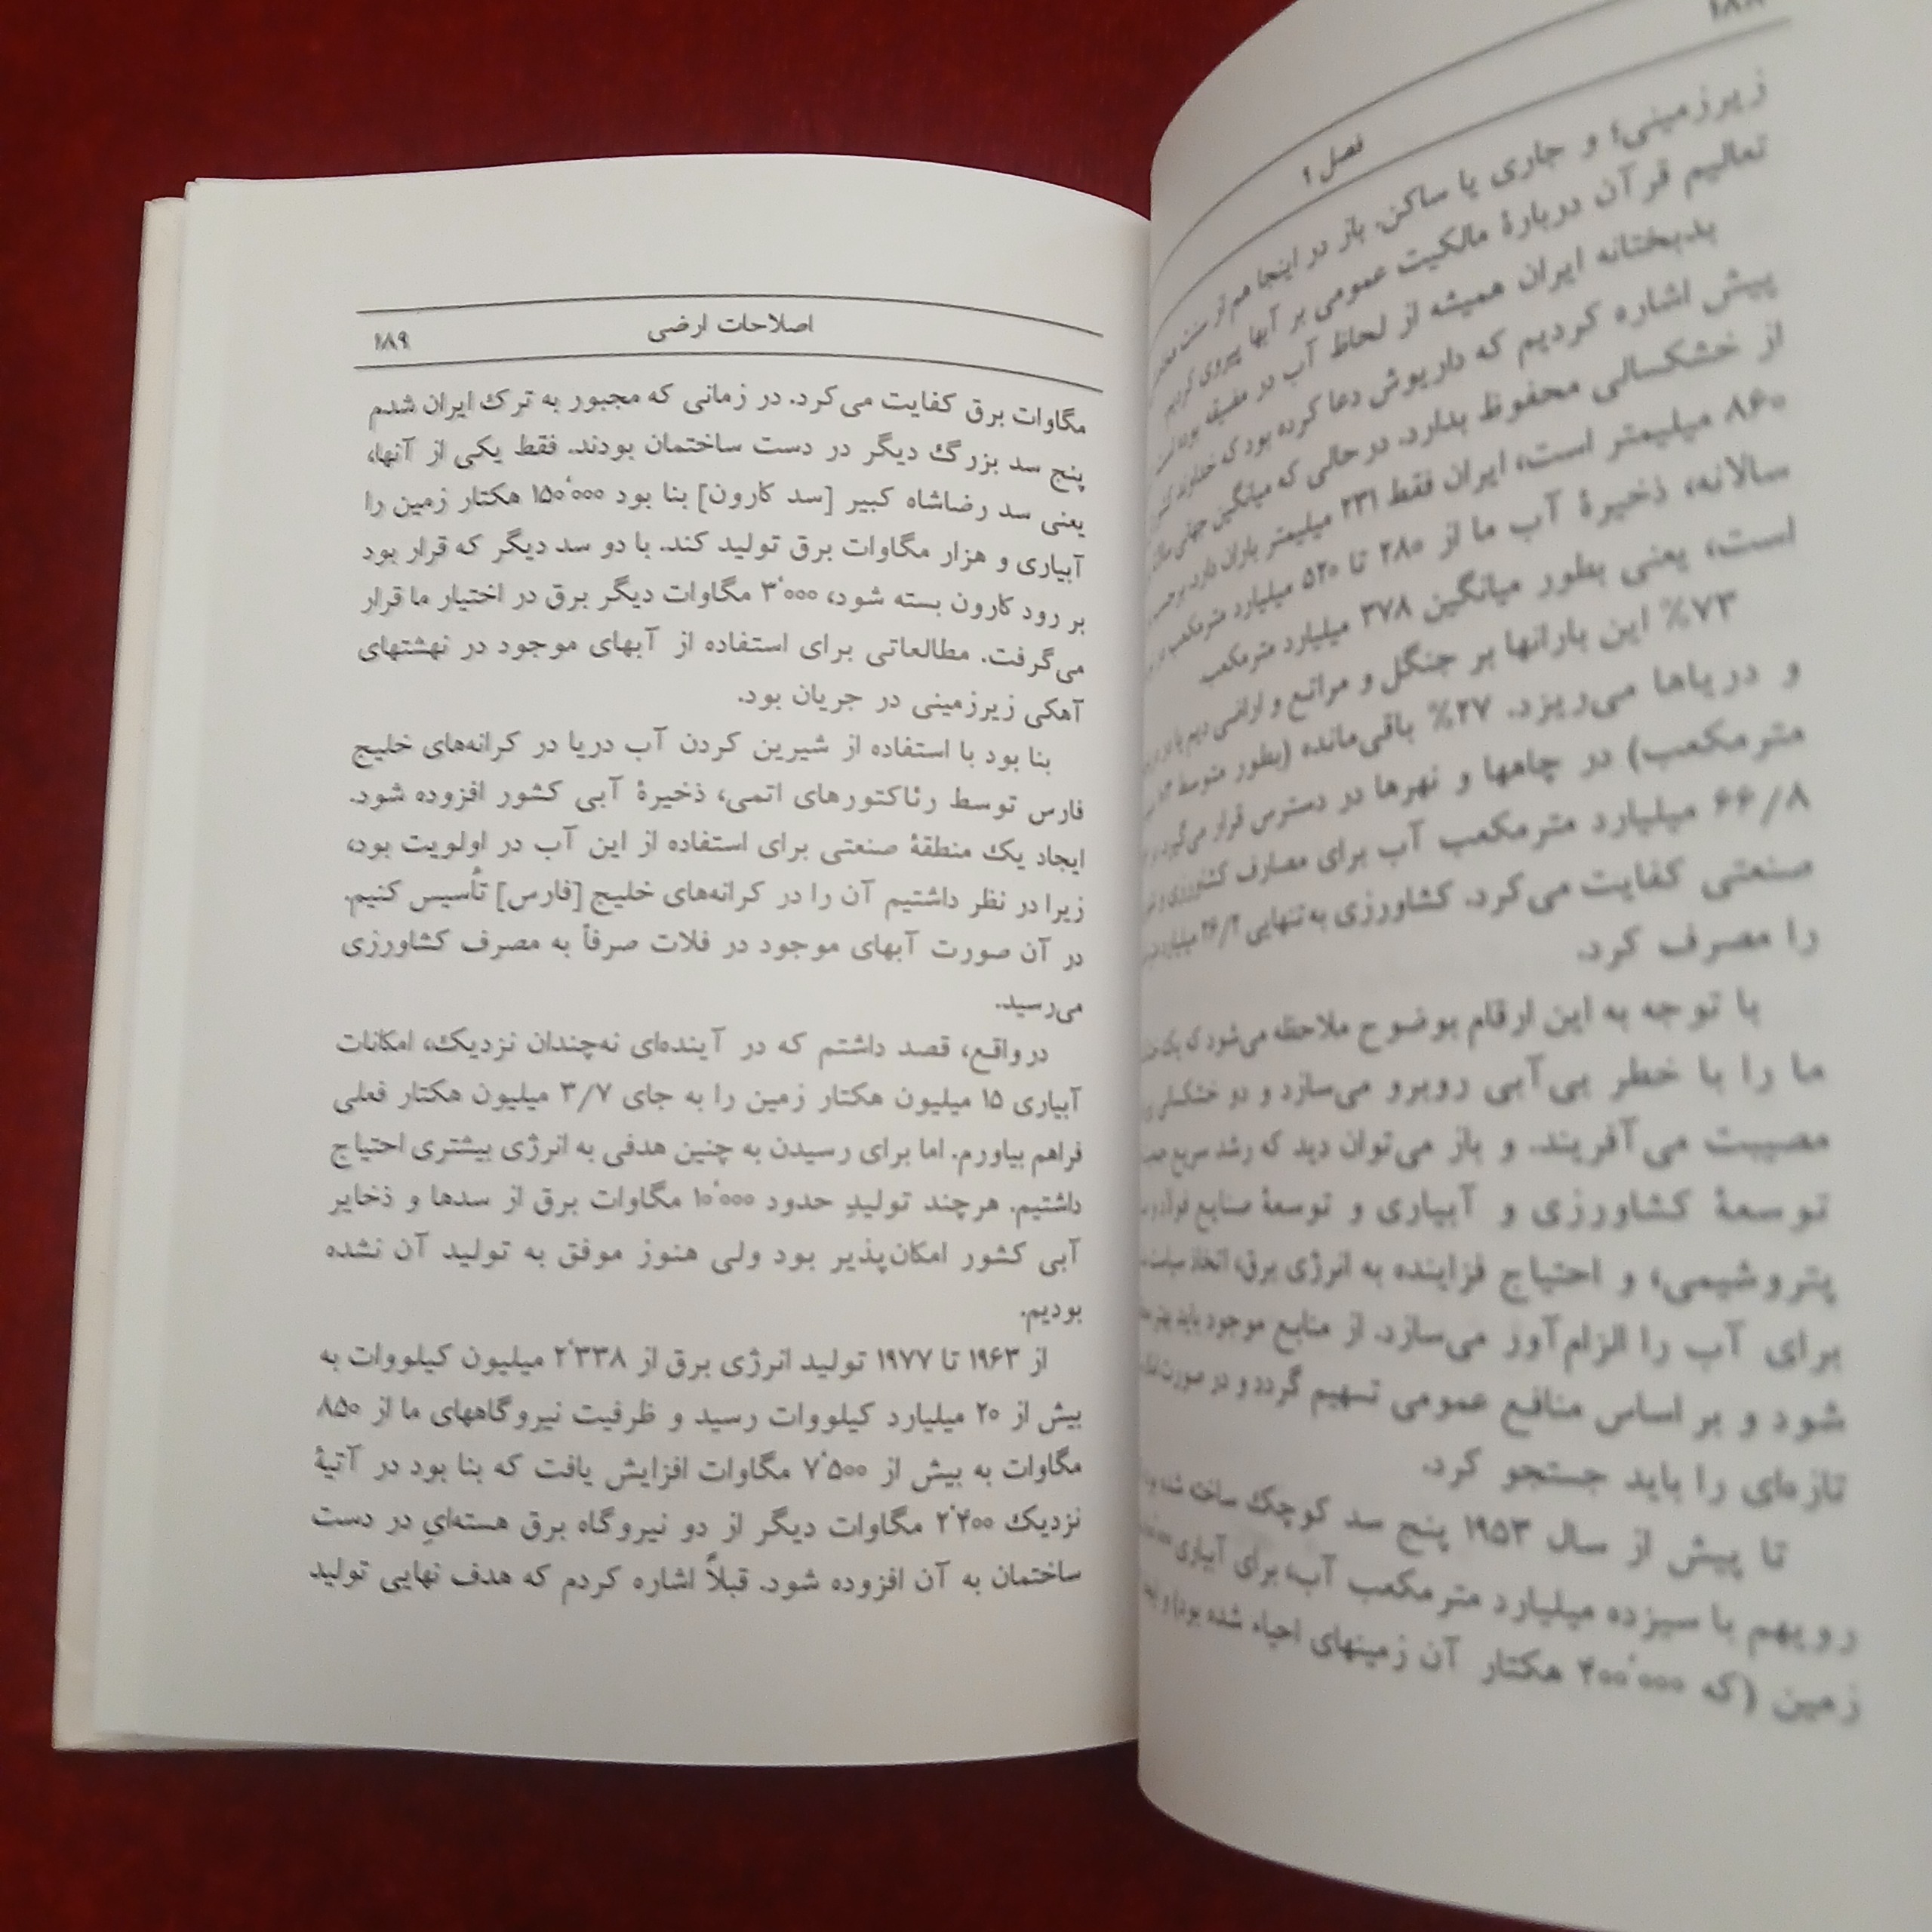 ۱۸۸
فصل ۹
زیرزمینی؛ و جاری یا ساکن. باز در اینجا هم از سنت
تعالیم قرآن دربارهٔ مالکیت عمومی بر آبها پیروی کردیم
بدبختانه ایران همیشه از لحاظ آب در مضیقه بوده است
پیش اشاره کردیم که داریوش دعا کرده بود که خداوند
از خشکسالی محفوظ بدارد. درحالی که میانگین جهانی
۸۶۰ میلیمتر است، ایران فقط ۲۳۱ میلیمتر باران دارد.
سالانه، ذخیرهٔ آب ما از ۲۸۰ تا ۵۲۰ میلیارد مترمکعب
است، یعنی بطور میانگین ۳۷۸ میلیارد مترمکعب
۷۳٪ این بارانها بر جنگل و مراتع و اراضی دیم
و دریاها می‌ریزد. ۲۷٪ باقی‌مانده (بطور متوسط
مترمکعب) در چاهها و نهرها در دسترس قرار می‌گیرد
۶۶/۸ میلیارد مترمکعب آب برای مصارف کشاورزی و
صنعتی کفایت می‌کرد. کشاورزی به‌تنهایی
را مصرف کرد.
با توجه به این ارقام بوضوح ملاحظه می‌شود که یک
ما را با خطر بی‌آبی روبرو می‌سازد و دو خشکسالی
مصیبت می‌آفریند. و باز می‌توان دید که رشد سریع
توسعهٔ کشاورزی و آبیاری و توسعهٔ صنایع
پتروشیمی، و احتیاج فزاینده به انرژی برق، اتخاذ
برای آب را الزام‌آور می‌سازد. از منابع موجود باید
شود و بر اساس منافع عمومی تسهیم گردد و در صورت
تازه‌ای را باید جستجو کرد.
تا پیش از سال ۱۹۵۳ پنج سد کوچک ساخته شده
رویهم با سیزده میلیارد مترمکعب آب، برای آبیاری
زمین (که ۴۰۰٬۰۰۰ هکتار آن زمینهای احیاء شده بود) و
اصلاحات ارضی
۱۸۹
مگاوات برق کفایت می‌کرد. در زمانی که مجبور به ترک ایران شدم
پنج سد بزرگ دیگر در دست ساختمان بودند. فقط یکی از آنها،
یعنی سد رضاشاه کبیر [سد کارون] بنا بود ۱۵۰٬۰۰۰ هکتار زمین را
آبیاری و هزار مگاوات برق تولید کند. با دو سد دیگر که قرار بود
بر رود کارون بسته شود، ۳٬۰۰۰ مگاوات دیگر برق در اختیار ما قرار
می‌گرفت. مطالعاتی برای استفاده از آبهای موجود در نهشتهای
آهکی زیرزمینی در جریان بود.
بنا بود با استفاده از شیرین کردن آب دریا در کرانه‌های خلیج
فارس توسط رئاکتورهای اتمی، ذخیرهٔ آبی کشور افزوده شود.
ایجاد یک منطقهٔ صنعتی برای استفاده از این آب در اولویت بود،
زیرا در نظر داشتیم آن را در کرانه‌های خلیج [فارس] تأسیس کنیم.
در آن صورت آبهای موجود در فلات صرفاً به مصرف کشاورزی
می‌رسید.
درواقع، قصد داشتم که در آینده‌ای نه‌چندان نزدیک، امکانات
آبیاری ۱۵ میلیون هکتار زمین را به جای ۳/۷ میلیون هکتار فعلی
فراهم بیاورم. اما برای رسیدن به چنین هدفی به انرژی بیشتری احتیاج
داشتیم. هرچند تولیدِ حدود ۱۰٬۰۰۰ مگاوات برق از سدها و ذخایر
آبی کشور امکان‌پذیر بود ولی هنوز موفق به تولید آن نشده
بودیم.
از ۱۹۶۳ تا ۱۹۷۷ تولید انرژی برق از ۲٬۳۳۸ میلیون کیلووات به
بیش از ۲۰ میلیارد کیلووات رسید و ظرفیت نیروگاههای ما از ۸۵۰
مگاوات به بیش از ۷٬۵۰۰ مگاوات افزایش یافت که بنا بود در آتیهٔ
نزدیک ۲٬۲۰۰ مگاوات دیگر از دو نیروگاه برق هسته‌ایِ در دست
ساختمان به آن افزوده شود. قبلاً اشاره کردم که هدف نهایی تولید